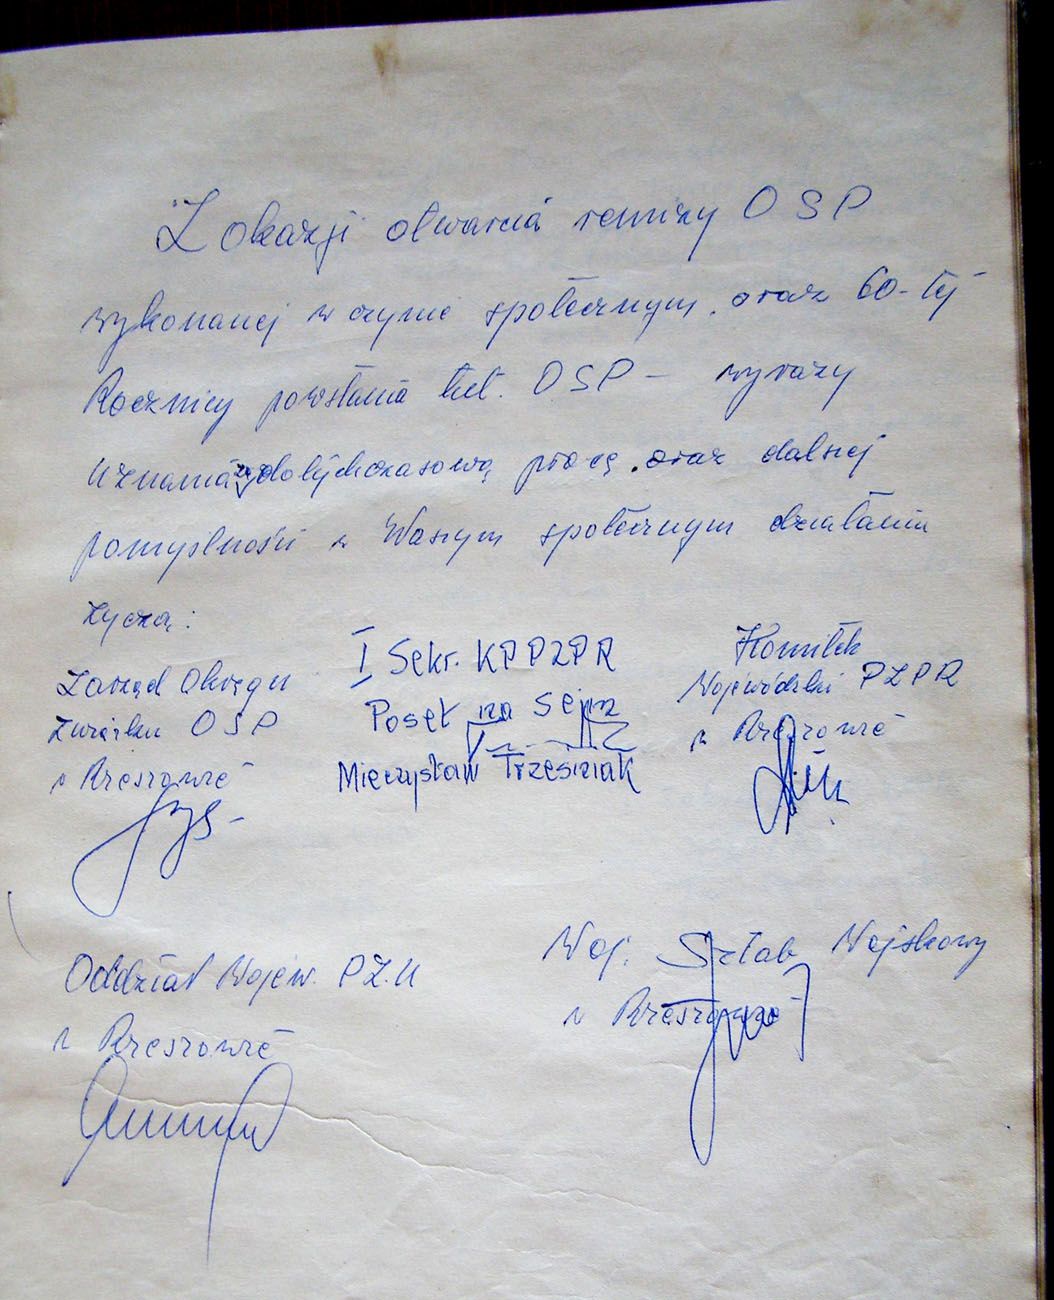 Z okazji otwarcia remizy OSP
wykonanej w czynie społecznym. oraz 60-tej
Rocznicy powstania tut. OSP – wyrazy
Uznania za dotychczasową pracę. oraz dalszej
pomyślności w Waszym społecznym działaniu
życzą:
Zarząd Okręgu
Związku OSP
w Rzeszowie
I Sekr. KPPZPR
Poseł na Sejm
Mieczysław Trzesiniak
Komitet
Wojewódzki PZPR
w Rzeszowie
Oddział Wojew. PZU
w Rzeszowie
Woj. Sztab Wojskowy
w Rzeszowie